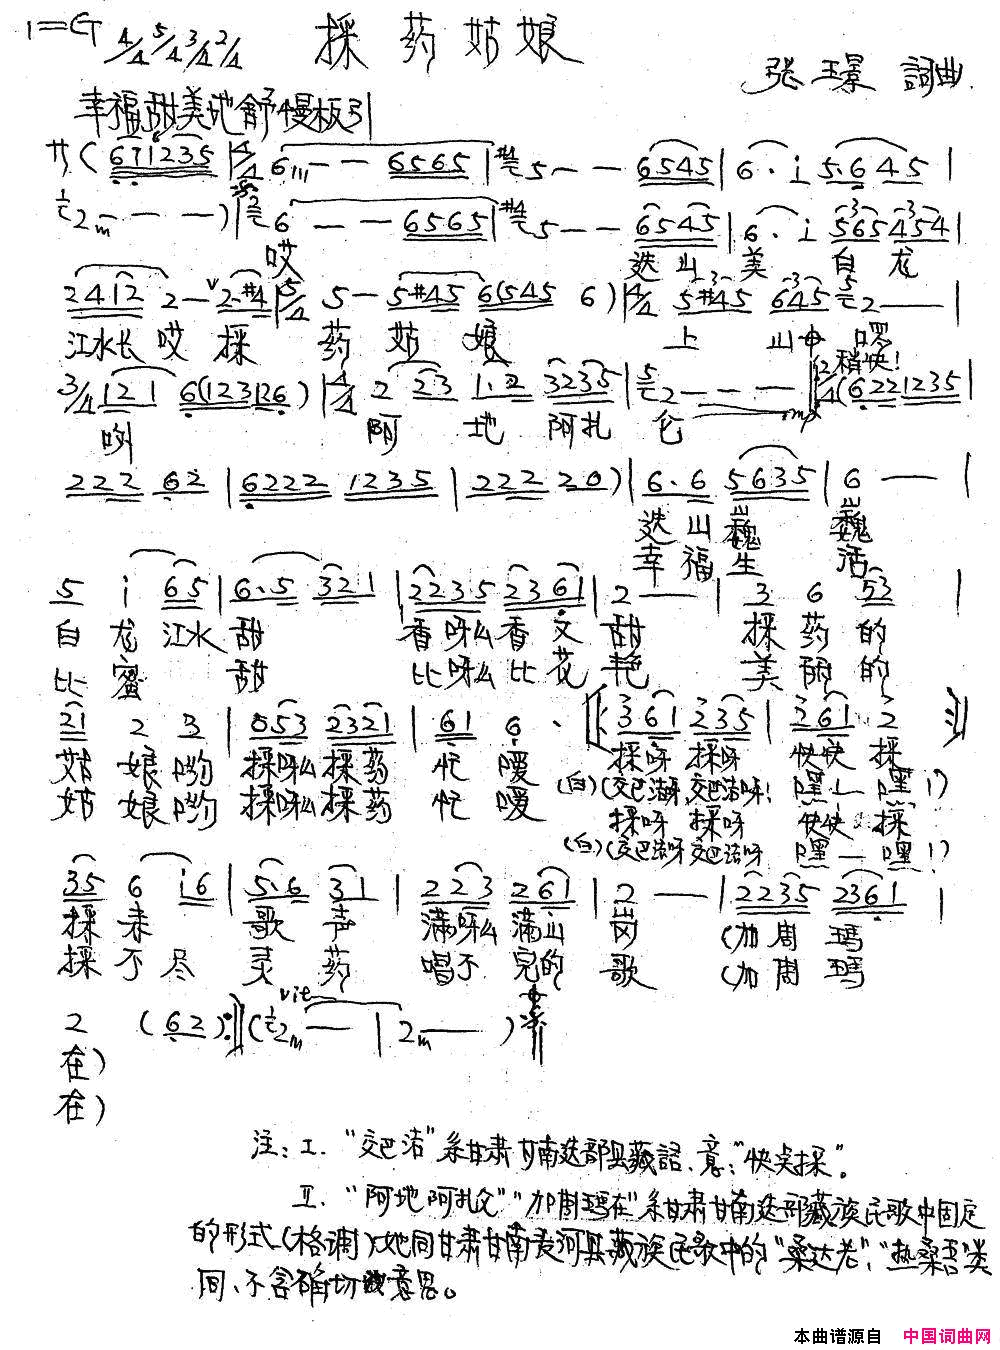 1=G 4/4 5/4 3/4 2/4 採药姑娘
张玉景 詞曲
幸福甜美地 舒慢板引
サ( 671235 | 4/4 6 — — 6565 | 5 — — 6545 | 6· i 5·645 |
2 — — —) | 6 — — 6565 | 5 — — 6545 | 6· i 565454 |
哎 迭山 美 白 龙
2412 2 — 2·#4 | 5/4 5 — 5#45 6(545 6) | 4/4 5#45 645 2 — — |
江水长 哎 採 药 姑 娘 上 山 啰
稍快!
3/4 121 6(123126) | 4/4 2 23 1·2 3235 | 2 — — — | 2/4 (6221235 |
哟 阿 地 阿扎 仑
222 62 | 6222 1235 | 222 20) | 6·6 5635 | 6 — |
迭山巍 巍
幸福生 活
5 i 65 | 6·5 321 | 2235 2361 | 2 — | 3 6 53 |
白 龙 江水 甜 香呀么香 文 甜 採 药 的
比 蜜 甜 比呀么比 花 艳 美 丽 的
21 2 3 | 053 2321 | 61 6 · 361 235 | 261 2
姑 娘 哟 採呀么採药 忙 嗳 採呀 採呀 快快 採
(白)(交巴洁呀,交巴洁呀! 嘿 — 嘿!)
姑 娘 哟 採呀么採药 忙 嗳 採呀 採呀 快快 採
(白)(交巴洁呀 交巴洁呀 嘿 — 嘿!)
35 6 i6 | 5·6 31 | 223 261 | 2 — | 2235 2361 |
採 来 歌 声 满呀么满山 岗 (加周 玛
採 不 尽 灵 药 唱不 完的 歌 (加周 玛
2 (62) :‖ (2 — | 2 — )
在)
在)
注: I. “交巴洁”系甘肃甘南迭部县藏語.意:“快点採”。
II. “阿地阿扎仑”“加周玛在”系甘肃甘南迭部藏族民歌中固定
的形式(格调)比如同甘肃甘南夏河县藏族民歌中的“桑达老”、“热桑否”类
同、不含确切的意思。
本曲谱源自 中国词曲网